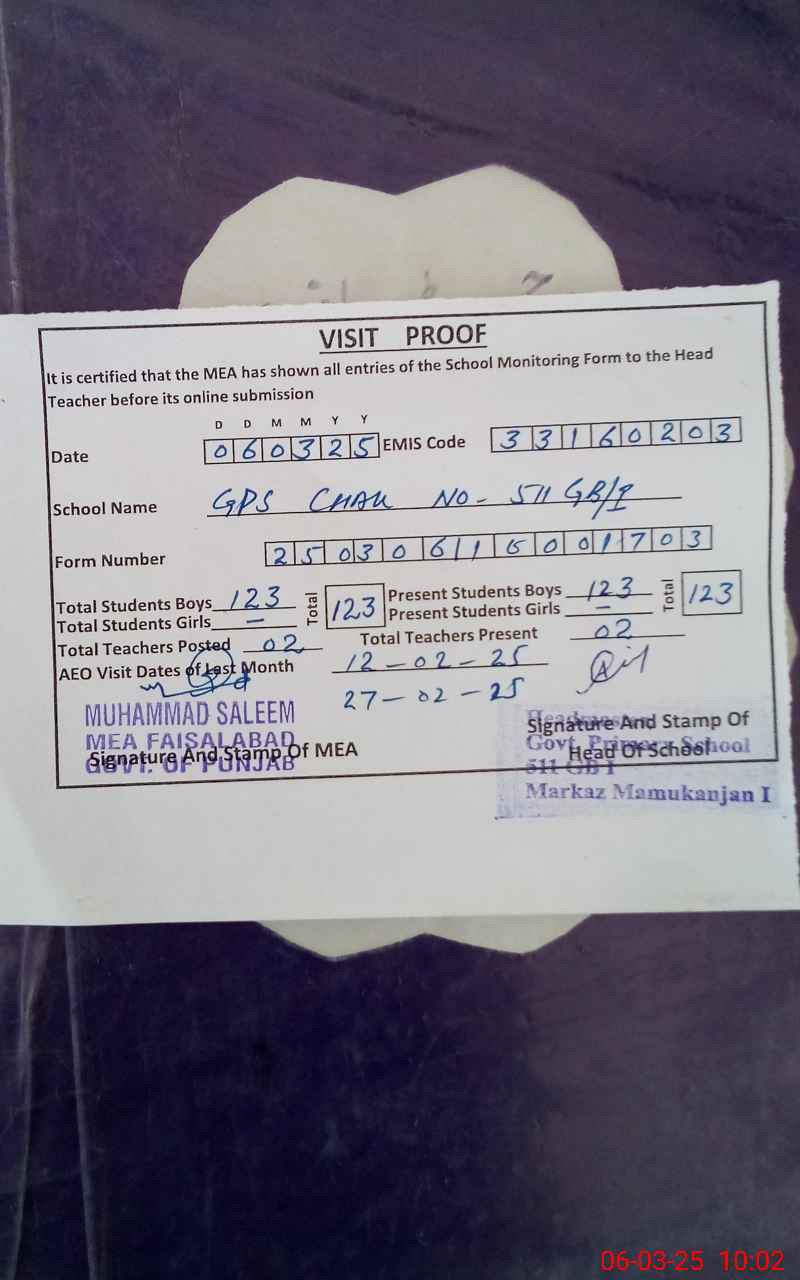 VISIT PROOF
It is certified that the MEA has shown all entries of the School Monitoring Form to the Head
Teacher before its online submission
D D M M Y Y
Date 060325 EMIS Code 33160203
School Name GPS CHAK NO- 511 GB/I
Form Number 250306116001703
Total Students Boys 123 Total 123 Present Students Boys 123 Total 123
Total Students Girls — Present Students Girls —
Total Teachers Posted 02 Total Teachers Present 02
AEO Visit Dates of Last Month 12-02-25
27-02-25
MUHAMMAD SALEEM
MEA FAISALABAD
GOVT. OF PUNJAB
Signature And Stamp Of MEA
Signature And Stamp Of
Head Of School
Govt. Primary School
511 GB I
Markaz Mamukanjan I
06-03-25 10:02